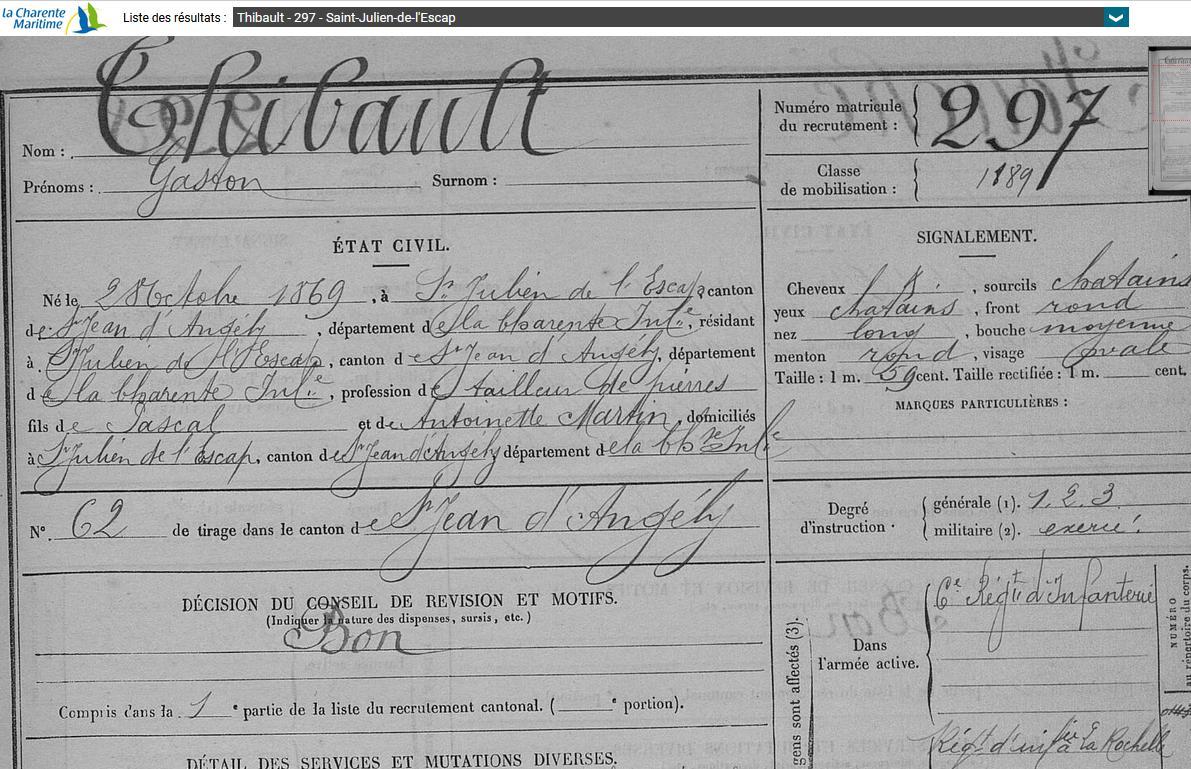 la Charente
Maritime
Liste des résultats :
Thibault - 297 - Saint-Julien-de-l'Escap
Nom : Thibault
Prénoms : Gaston Surnom :
Numéro matricule
du recrutement : 297
Classe
de mobilisation : 1889
ÉTAT CIVIL.
Né le 28 Octobre 1869, à St Julien de l'Escap, canton
de St Jean d'Angély, département de la Charente Infre, résidant
à St Julien de l'Escap, canton de St Jean d'Angély, département
de la Charente Infre, profession de tailleur de pierres
fils de Pascal et de Antoinette Martin, domiciliés
à St Julien de l'Escap, canton de St Jean d'Angély département de la Chte Infre
N° 62 de tirage dans le canton de St Jean d'Angély
DÉCISION DU CONSEIL DE REVISION ET MOTIFS.
(Indiquer la nature des dispenses, sursis, etc.)
Bon
Compris dans la 1 e partie de la liste du recrutement cantonal. ( e portion).
DÉTAIL DES SERVICES ET MUTATIONS DIVERSES.
SIGNALEMENT.
Cheveux , sourcils chatains
yeux chatains, front rond
nez long, bouche moyenne
menton rond, visage ovale
Taille : 1 m. 59 cent. Taille rectifiée : 1 m. cent.
MARQUES PARTICULIÈRES :
Degré
d'instruction.
générale (1). 1.2.3
militaire (2). exercé
gens sont affectés (3).
Dans
l'armée active.
6e Régit d'Infanterie
NUMÉRO
au répertoire du corps.
Régt d'infie La Rochelle